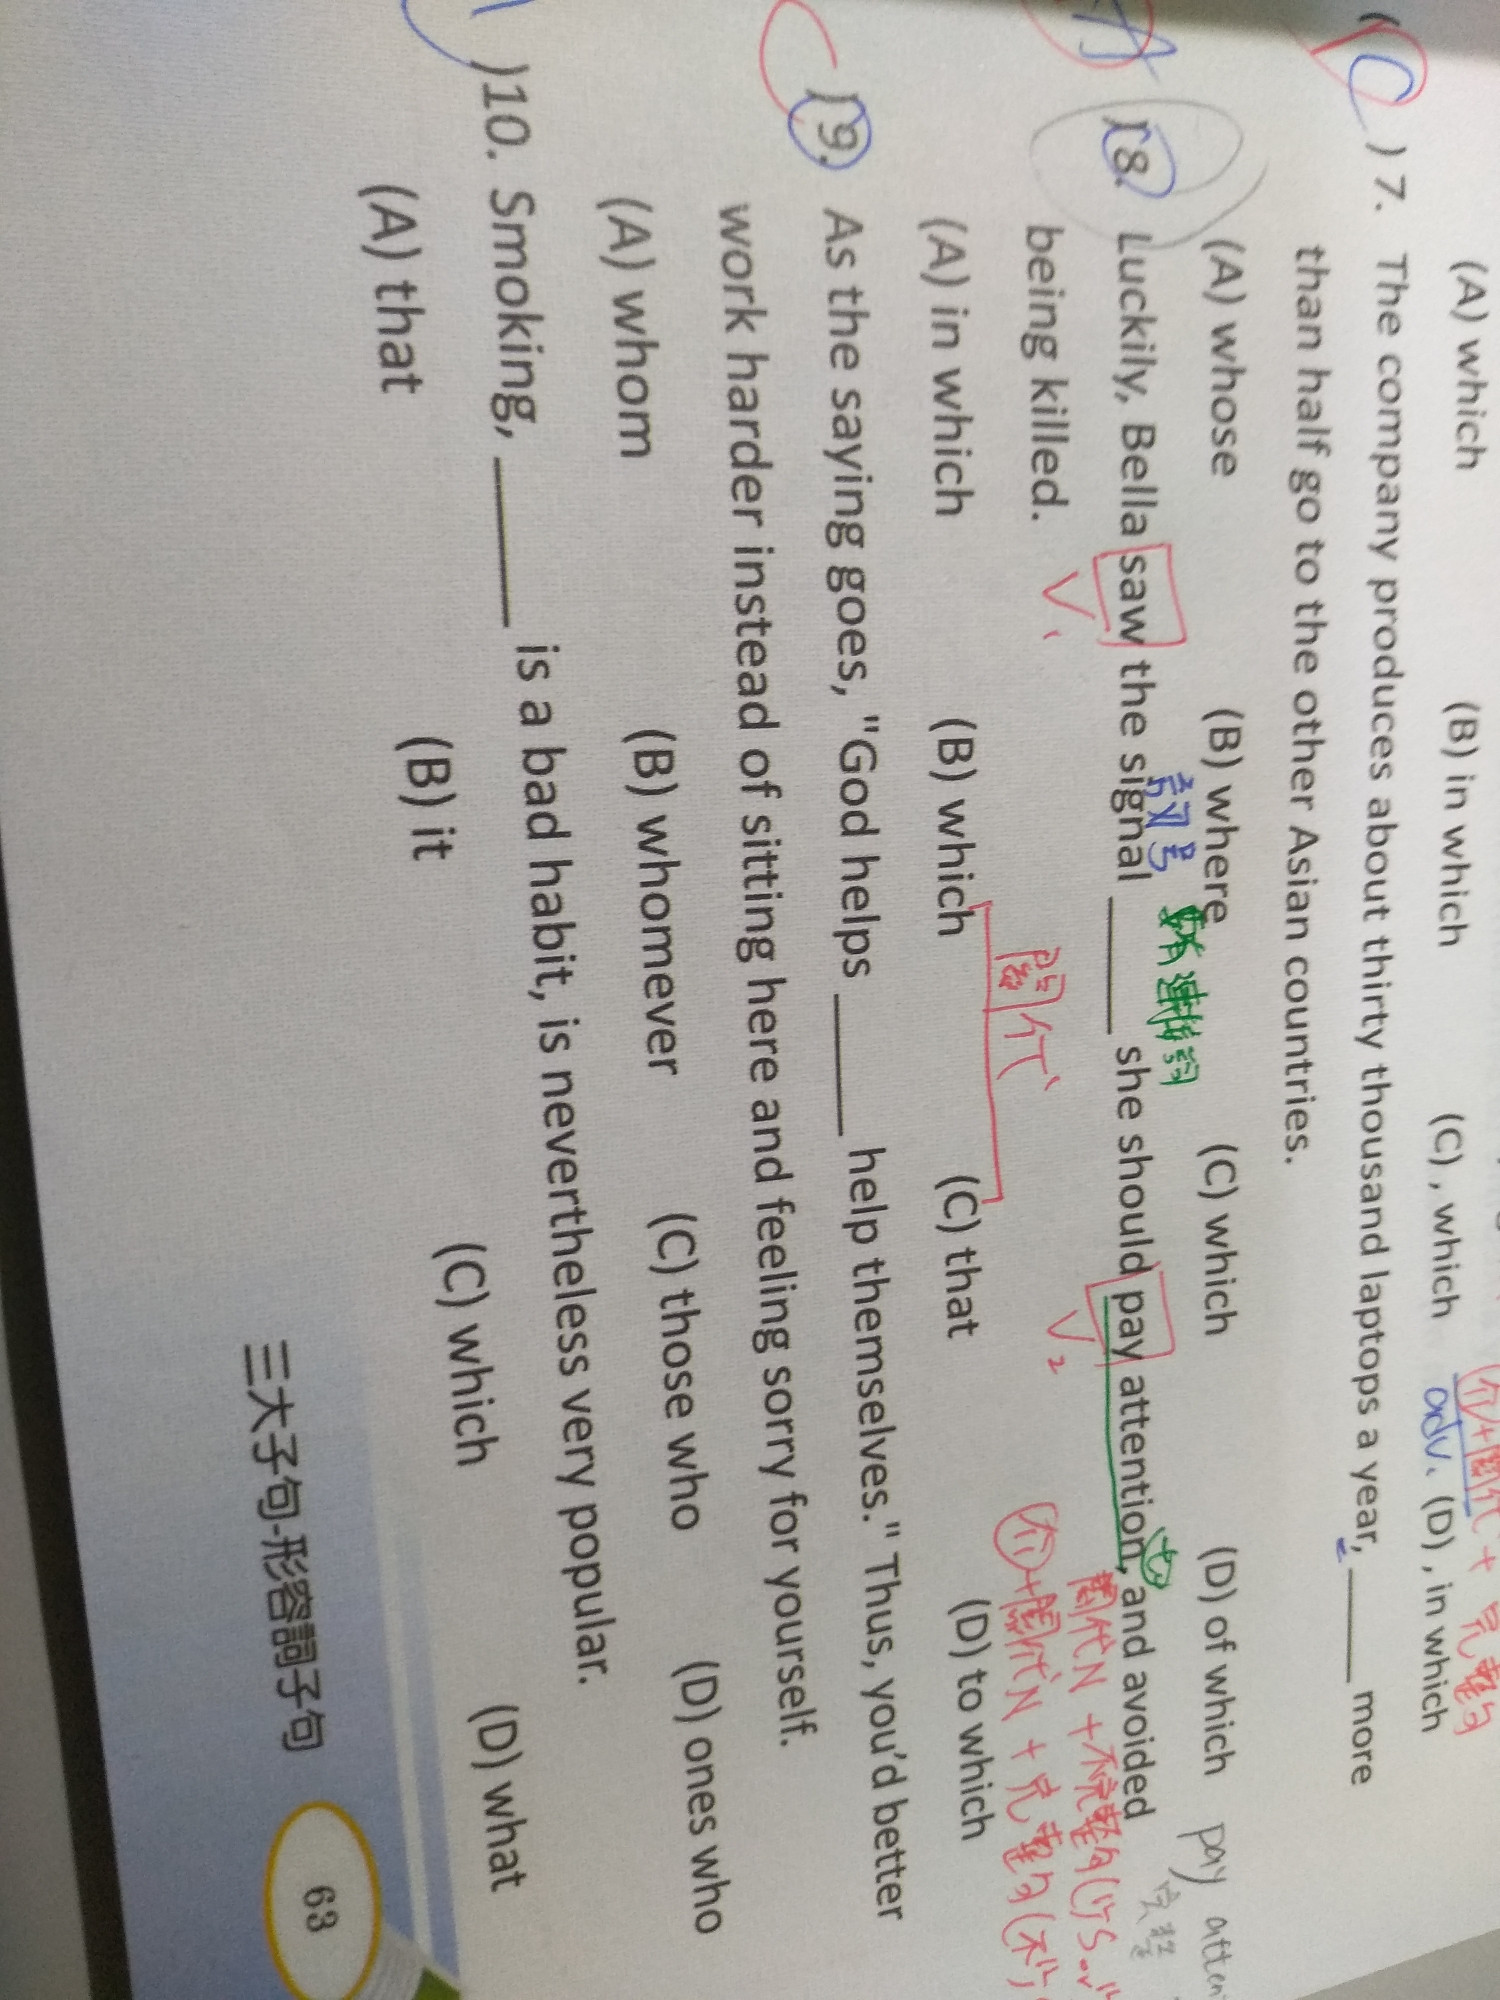 (A) which (B) in which (C) , which (D) , in which
adv.
C
( )7. The company produces about thirty thousand laptops a year, ______ more
than half go to the other Asian countries.
(A) whose (B) where (C) which (D) of which
pay
A
訊號
( )8. Luckily, Bella saw the signal ______ she should pay attention, and avoided
being killed.
V1
關代
V2
關代N + 不完整句
介+關代N + 完整句
(A) in which (B) which (C) that (D) to which
( )9. As the saying goes, "God helps ______ help themselves." Thus, you'd better
work harder instead of sitting here and feeling sorry for yourself.
(A) whom (B) whomever (C) those who (D) ones who
( )10. Smoking, ______ is a bad habit, is nevertheless very popular.
(A) that (B) it (C) which (D) what
三大子句-形容詞子句
63